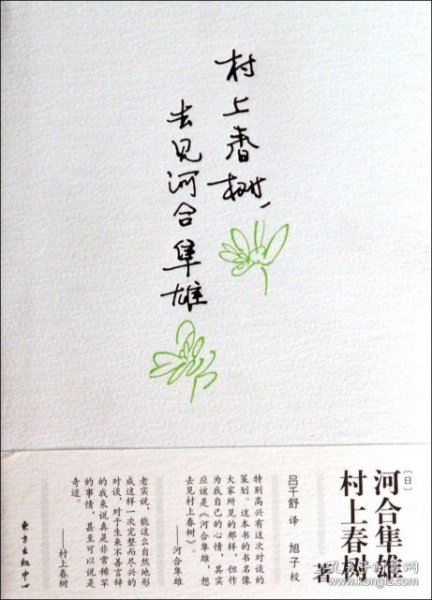 村上春树，
去见河合隼雄
[日]
河合隼雄
村上春树
著
吕千舒 译 旭子 校
特别高兴有这次对谈的
策划。这本书的书名像
大家所见的那样，但作
为我自己的心情，其实
应该是《河合隼雄，想
去见村上春树》。
——河合隼雄
老实说，能这么自然地形
成这样一次完整而尽兴的
对谈，对于生来不善言辞
的我来说真是非常稀罕
的事情，甚至可以说是
奇迹。
——村上春树
东方出版中心